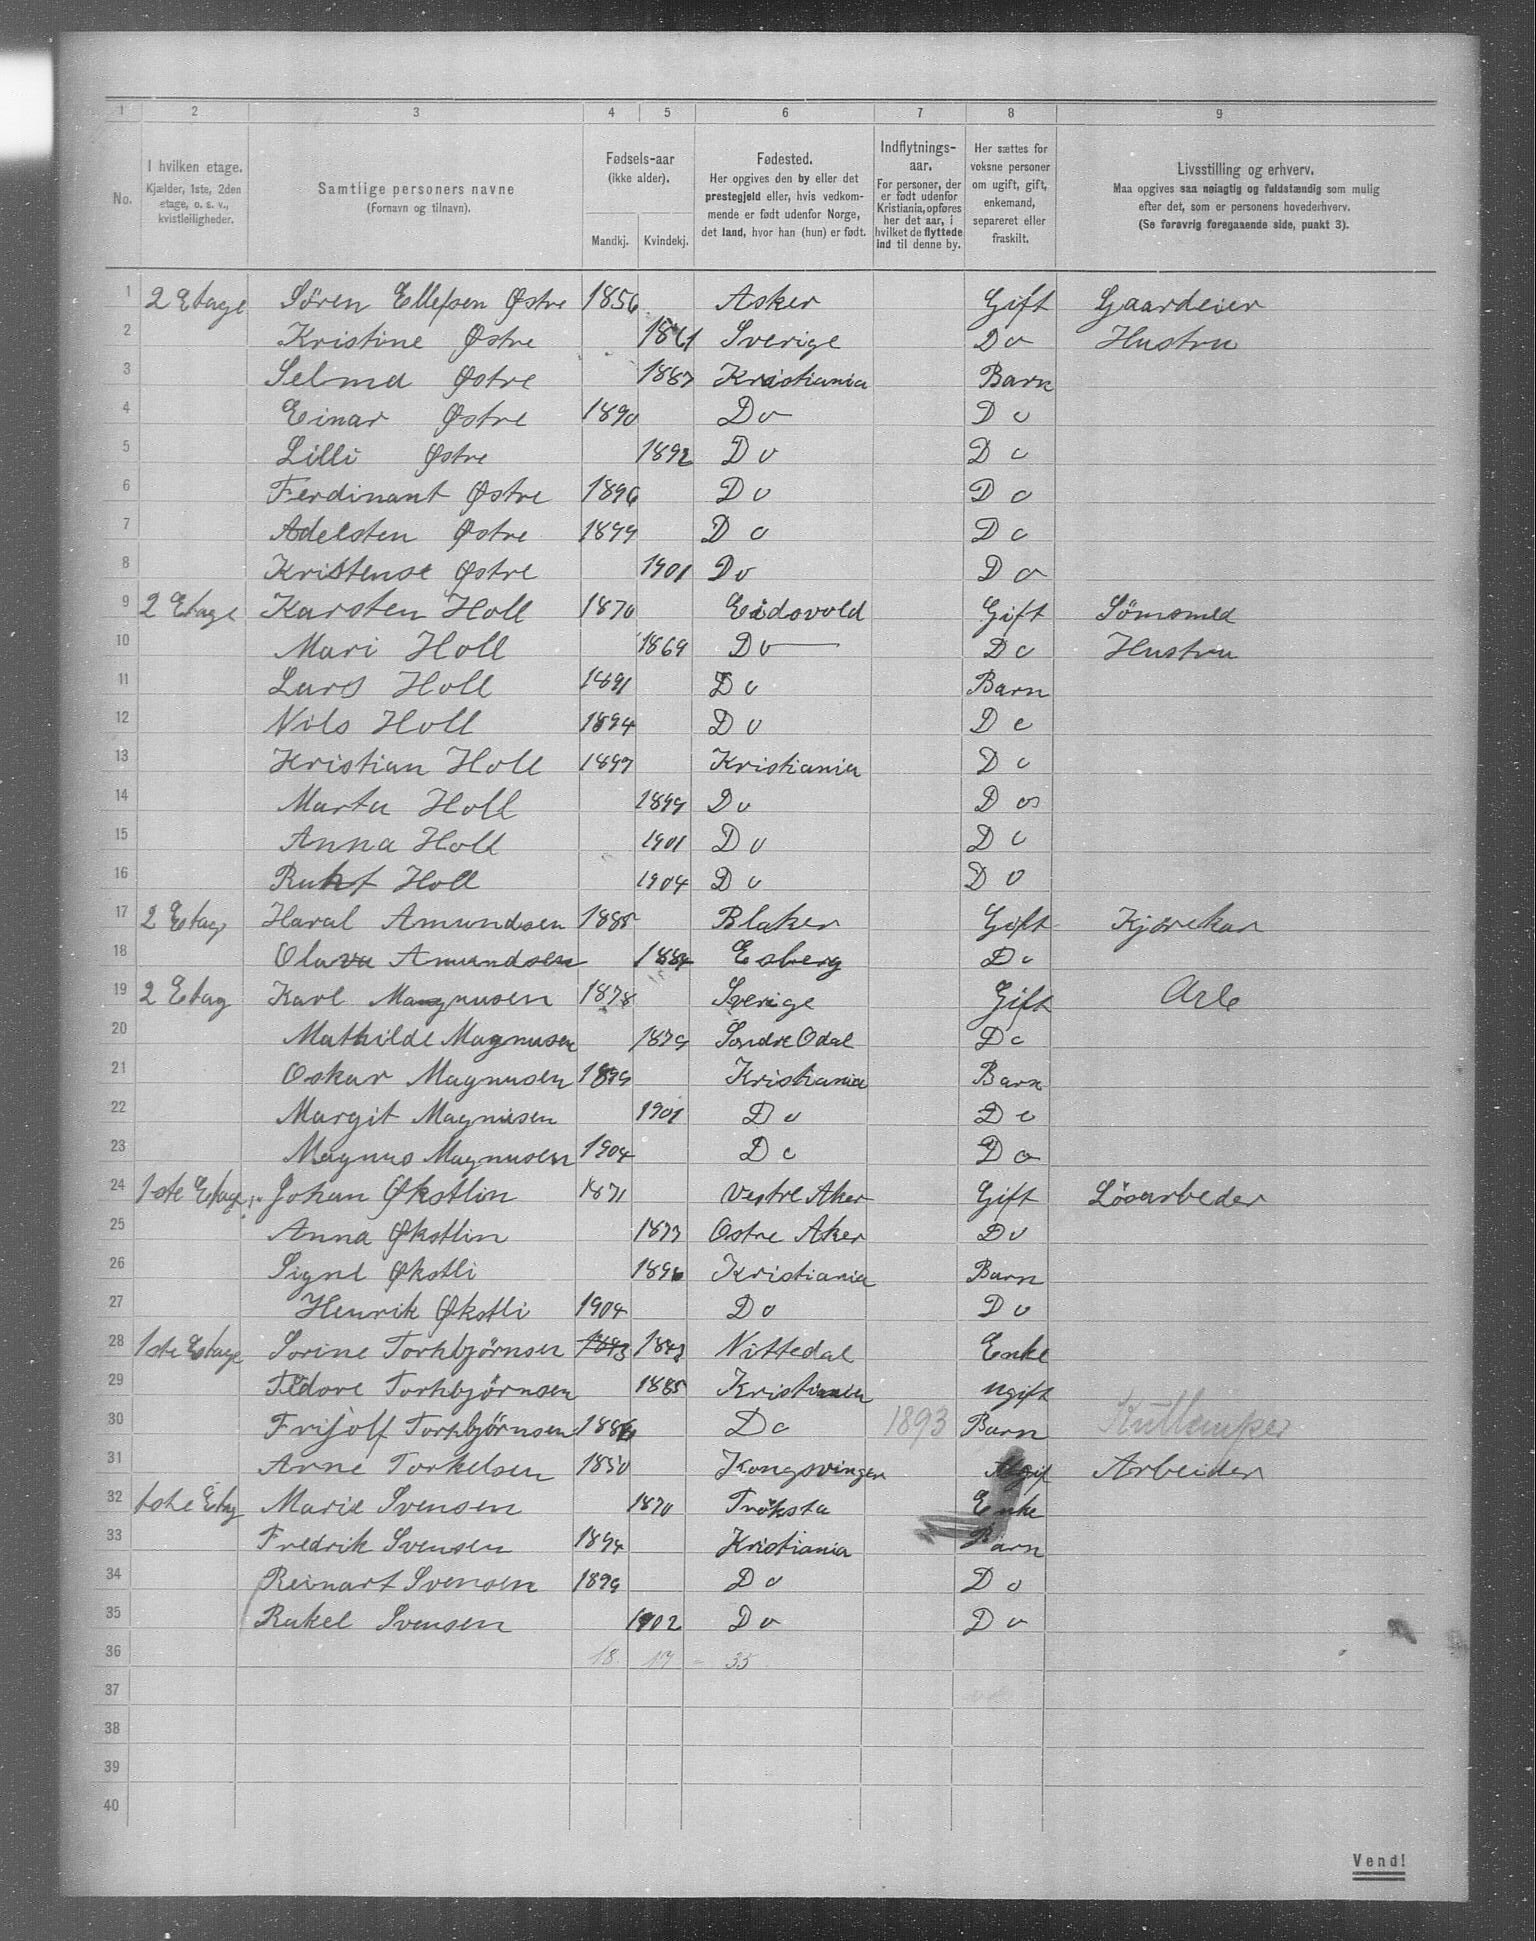 1 2 3 4 5 6 7 8 9
No.
I hvilken etage.
Kjælder, 1ste, 2den
etage, o. s. v.,
kvistleiligheder.
Samtlige personers navne
(Fornavn og tilnavn).
Fødsels-aar
(ikke alder).
Mandkj. Kvindekj.
Fødested.
Her opgives den by eller det
prestegjeld eller, hvis vedkom-
mende er født udenfor Norge,
det land, hvor han (hun) er født.
Indflytnings-
aar.
For personer, der
er født udenfor
Kristiania, opføres
her det aar, i
hvilket de flyttede
ind til denne by.
Her sættes for
voksne personer
om ugift, gift,
enkemand,
separeret eller
fraskilt.
Livsstilling og erhverv.
Maa opgives saa nøiagtig og fuldstændig som mulig
efter det, som er personens hovederhverv.
(Se forøvrig foregaaende side, punkt 3).
1 2 Etage Sören Ellefsen Østre 1856 Asker Gift Gaardeier
2 Kristine Østre 1861 Sverige Do Hustru
3 Selma Østre 1887 Kristiania Barn
4 Einar Østre 1890 Do Do
5 Lilli Østre 1892 Do Do
6 Ferdinant Østre 1896 Do Do
7 Adelsten Østre 1899 Do Do
8 Kristense Østre 1901 Do Do
9 2 Etage Karsten Holl 1870 Eidsvold Gift Sömsmed
10 Mari Holl 1869 Do Do Hustru
11 Lars Holl 1891 Do Barn
12 Nils Holl 1894 Do Do
13 Kristian Holl 1897 Kristiania Do
14 Marta Holl 1899 Do Do
15 Anna Holl 1901 Do Do
16 Holl 1904 Do Do
17 2 Etag Haral Amundsen 1885 Blaker Gift Kjörekar
18 Olava Amundsen 1884 Esberg Do
19 2 Etag Karl Magnusen 1878 Sverige Gift Arb
20 Mathilde Magnusen 1879 Söndre Odal Do
21 Oskar Magnusen 1899 Kristiania Barn
22 Margit Magnusen 1901 Do Do
23 Magnus Magnusen 1904 Do Do
24 1ste Etage Johan Økstlin 1871 Vestre Aker Gift Lösarbeder
25 Anna Økstlin 1873 Ostre Aker Do
26 Signe Økstli 1896 Kristiania Barn
27 Henrik Økstli 1904 Do Do
28 1ste Etage Sorine Torkbjörnsen 1843 1843 Nittedal Enke
29 Torkbjörnsen 1885 Kristiania ugift
30 Fritjolf Torkbjörnsen 1886 Do 1893 Barn
31 Arne Torkelsen 1850 Kongsvinger Arbeider
32 1ste Etag Marie Svensen 1870 Tröksta Enke
33 Fredrik Svensen 1894 Kristiania Barn
34 Reinart Svensen 1899 Do Do
35 Rakel Svensen 1902 Do Do
36 18 17 - 35
37
38
39
40
Vend!